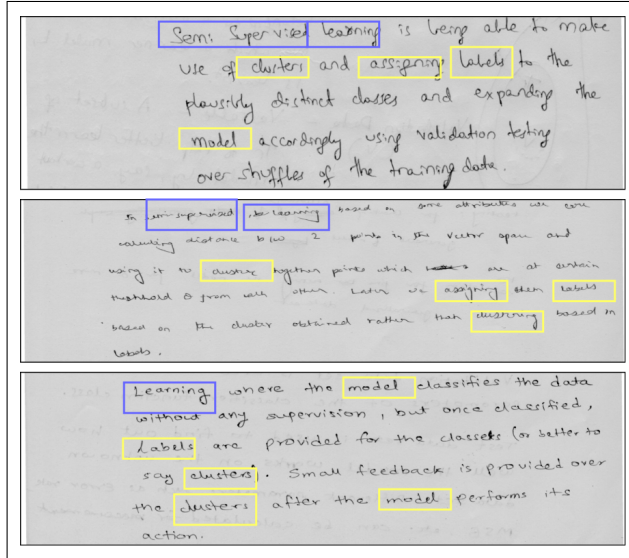 Semi Supervised Learning is being able to make
use of clusters and assigning labels to the
plausibly distinct classes and expanding the
model accordingly using validation testing
over shuffles of the training data.
In semi-supervised, the learning based on some attributes we are
calculating distance b/w 2 points in the vector space and
using it to cluster together points which are at certain
threshold θ from each other. Later we assigning them labels
based on the cluster obtained rather than clustering based on
labels.
Learning where the model classifies the data
without any supervision, but once classified,
Labels are provided for the classes (or better to
say clusters). Small feedback is provided over
the clusters after the model performs its
action.